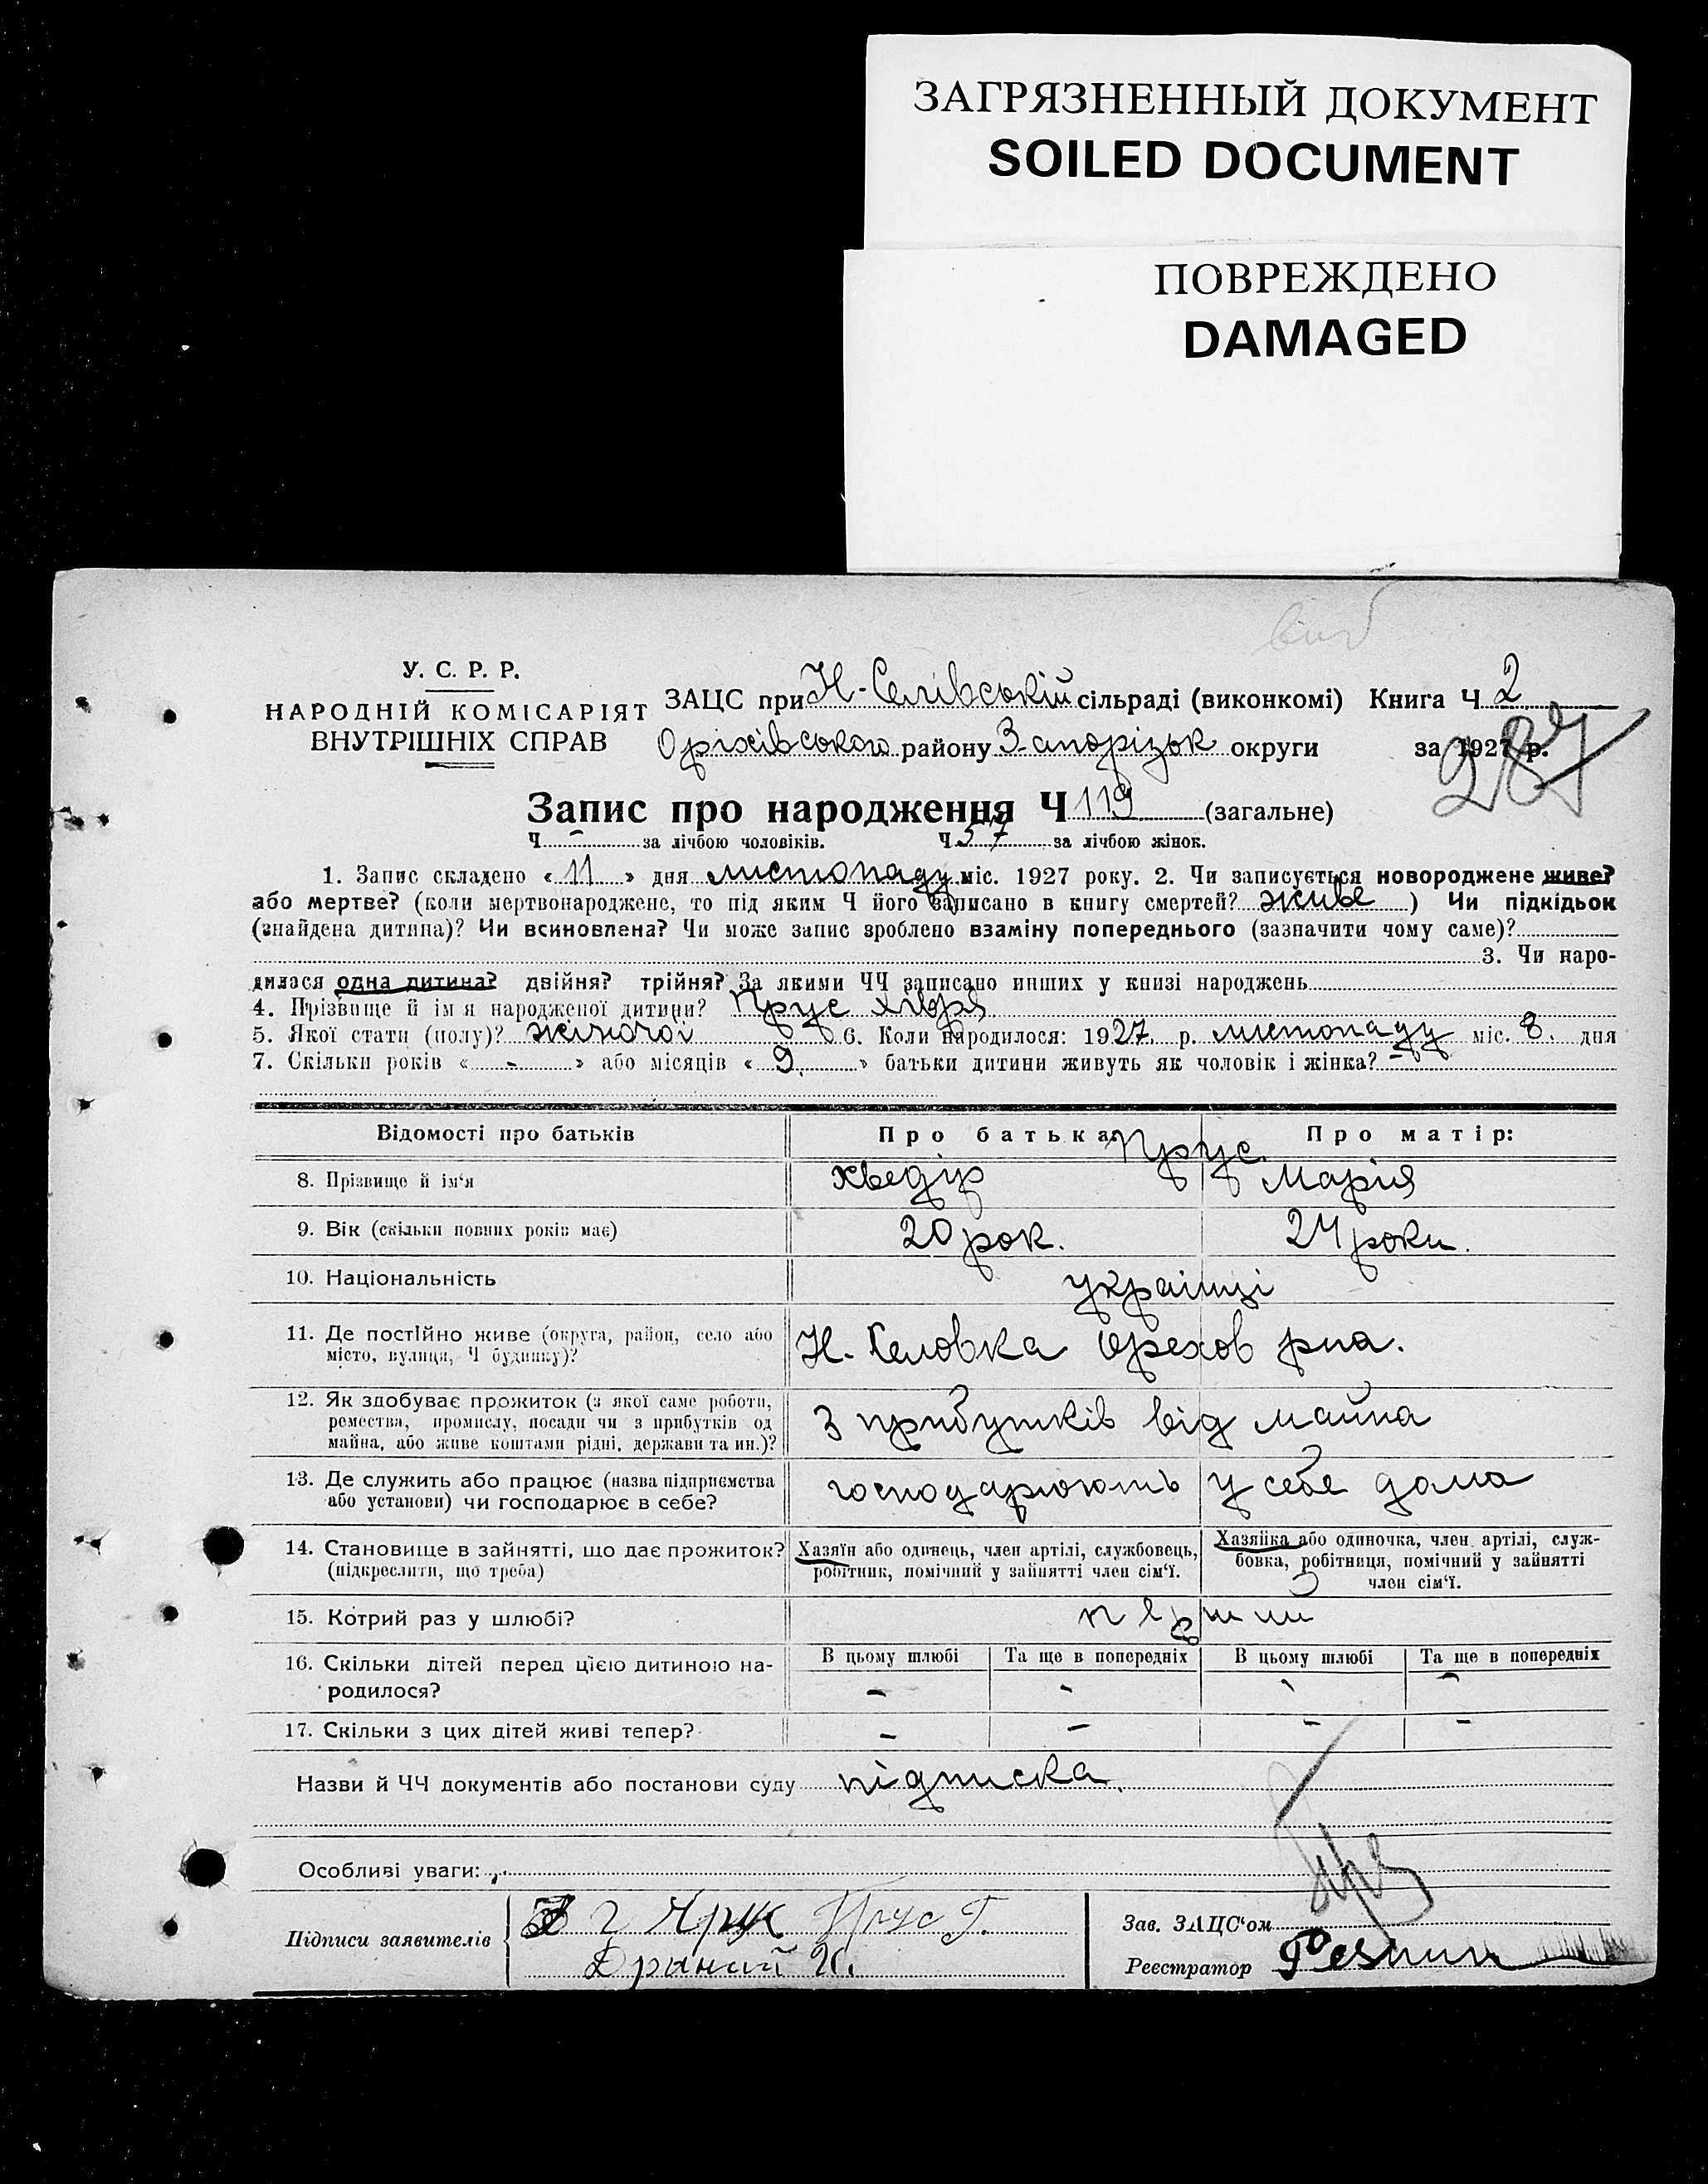 ЗАГРЯЗНЕННЫЙ ДОКУМЕНТ
SOILED DOCUMENT
ПОВРЕЖДЕНО
DAMAGED
У. С. Р. Р.
НАРОДНІЙ КОМІСАРІЯТ
ВНУТРІШНІХ СПРАВ
ЗАЦС при Н-Селівській сільраді (виконкомі) Книга Ч 2
Оріхівського району Запорізьк округи за 1927 р.
287
Запис про народження Ч 119 (загальне)
Ч - за лічбою чоловіків. Ч 57 за лічбою жінок.
1. Запис складено « 11 » дня листопаду міс. 1927 року. 2. Чи записується новороджене живе?
або мертве? (коли мертвонароджене, то під яким Ч його записано в книгу смертей? живе ) Чи підкідьок
(знайдена дитина)? Чи всиновлена? Чи може запис зроблено взаміну попереднього (зазначити чому саме)?
3. Чи наро-
дилася одна дитина? двійня? трійня? За якими ЧЧ записано инших у книзі народжень
4. Прізвище й ім я народженої дитини? Прус
5. Якої стати (полу)? жіночої 6. Коли народилося: 1927. р. листопаду міс. 8. дня
7. Скільки років « - » або місяців « 9. » батьки дитини живуть як чоловік і жінка? -
Відомості про батьків Про батька: Про матір:
Прус
8. Прізвище й ім‘я Хведір Марія
9. Вік (скільки повних років має) 20 рок. 24 роки.
10. Національність українці
11. Де постійно живе (округа, район, село або
місто, вулиця, Ч будинку)? Н. Селовка Орехов рна.
12. Як здобуває прожиток (з якої саме роботи,
ремества, промислу, посади чи з прибутків од
майна, або живе коштами рідні, держави та ин.)? З прибутків від майна
13. Де служить або працює (назва підприємства
або установи) чи господарює в себе? господарюють у себе дома
14. Становище в зайнятті, що дає прожиток?
(підкреслити, що треба)
Хазяїн або одинець, член артілі, службовець,
робітник, помічний у зайнятті член сім‘ї.
Хазяйка або одиночка, член артілі, служ-
бовка, робітниця, помічний у зайнятті
член сім‘ї.
15. Котрий раз у шлюбі? перший
16. Скільки дітей перед цією дитиною на-
родилося?
В цьому шлюбі Та ще в попередніх В цьому шлюбі Та ще в попередніх
- - - -
17. Скільки з цих дітей живі тепер? - - - -
Назви й ЧЧ документів або постанови суду підписка.
Особливі уваги:
Підписи заявителів Прус Г.
Драний И.
Зав. ЗАЦС‘ом
Реєстратор